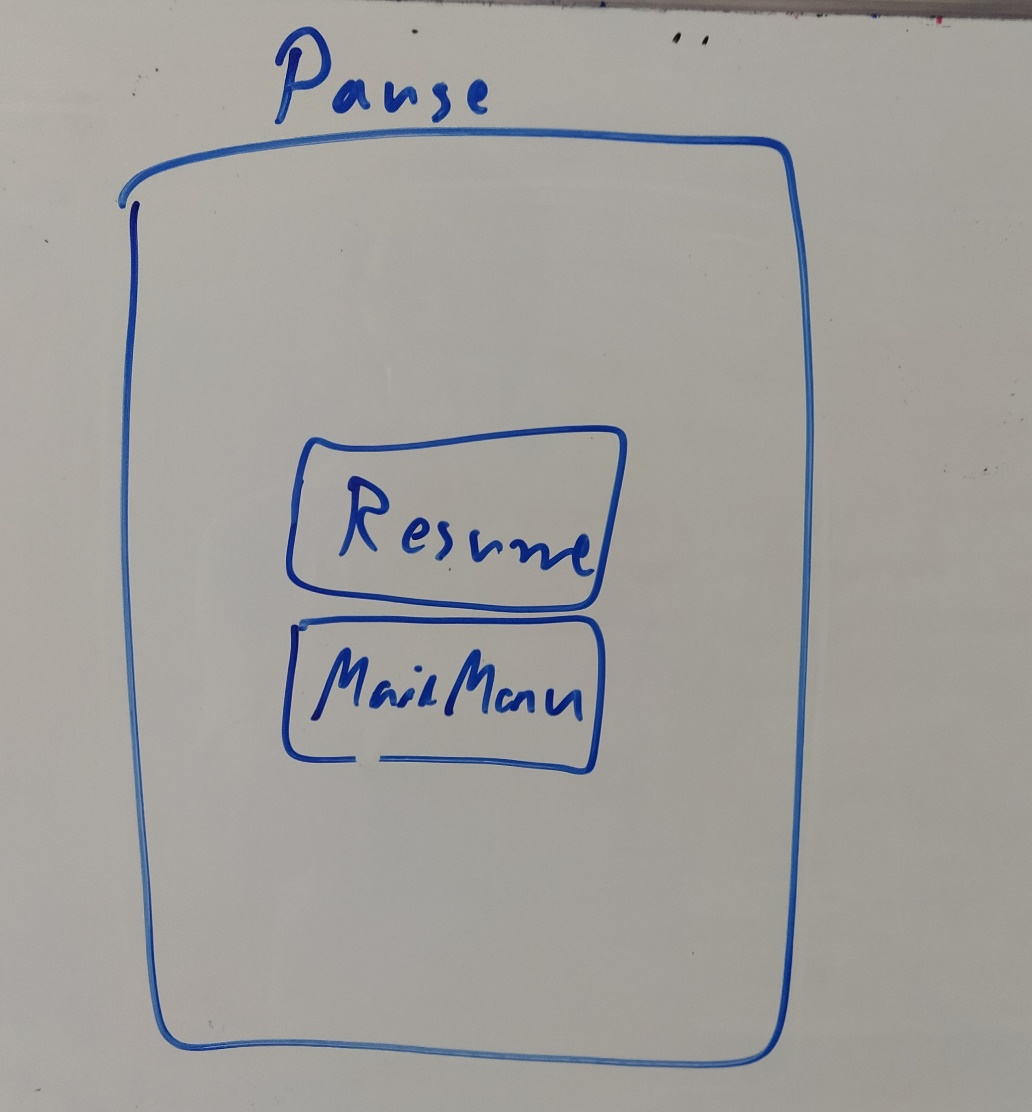 Pause
Resume
Main Manu